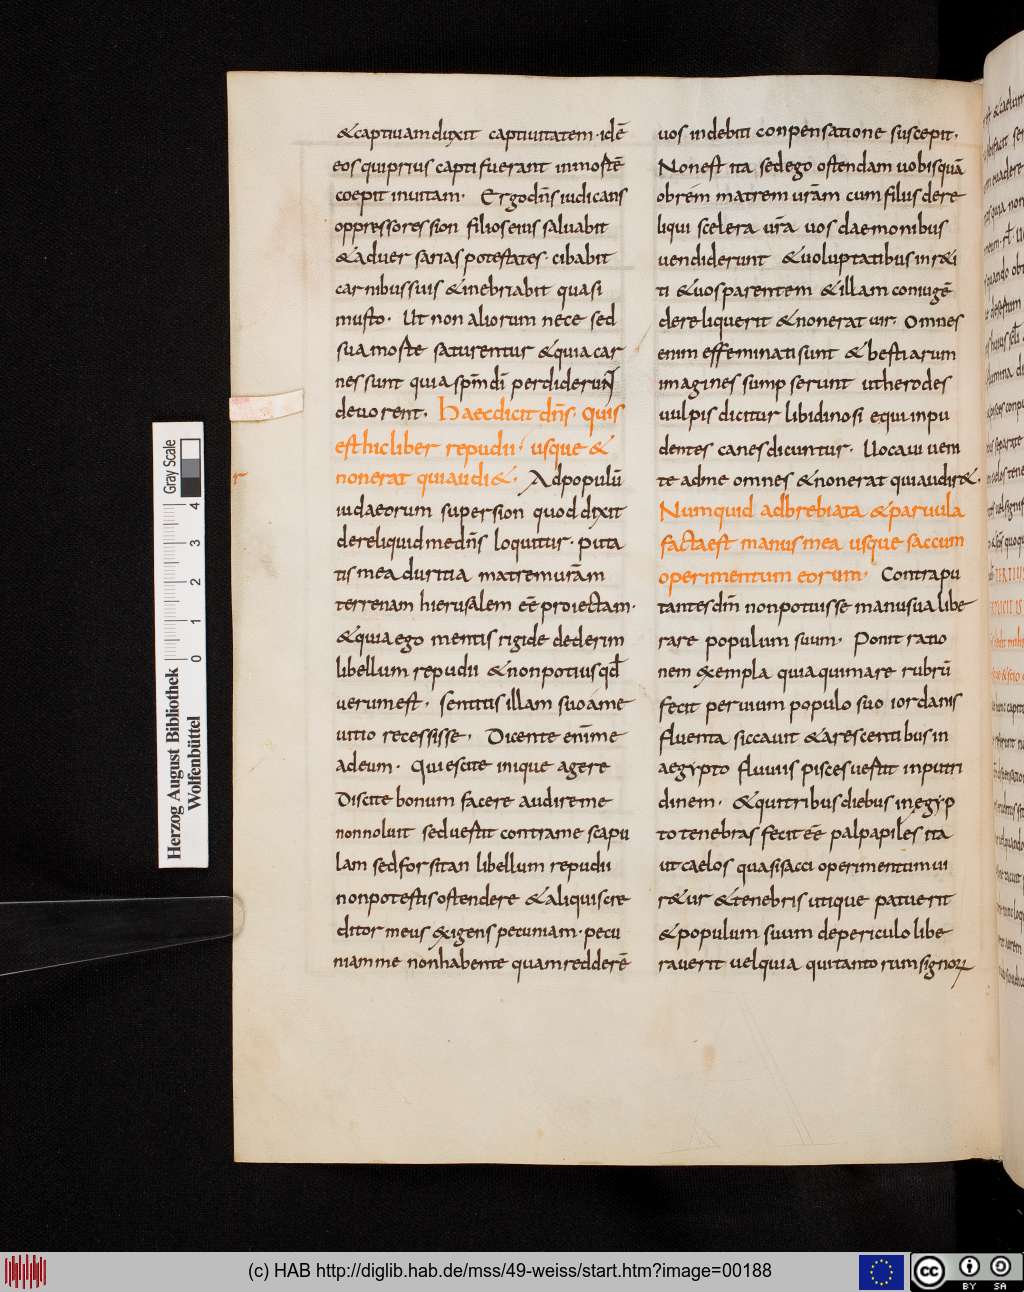 &captiuamdixit captiuitatem· idē
eos quiprius capti fuerant inmostē
coepit inuitam· Ergodn̄s iudicans
oppressores sion filios eius saluabit
&aduersarias potestates· cibabit
carnibus suis &inebriabit quasi
musto· Ut non aliorum nece sed
sua moste saturentur &quia car
nes sunt quia sp̄m dī perdiderunt
deuorent· Haec dicit dn̄s quis
est hic liber repudii· usque &
non erat qui audi&· Ad populū
iudaeorum super sion quod dixit
dereliquid me dn̄s loquitur· puta
tis mea duritia matrem urām
terrenam hierusalem eē proiectam·
&quia ego mentis rigide dederim
libellum repudii &non potius qd̄
uerum est· sentitis illam suo a me
uitio recessisse· Dicente enīm e
ad eum· Quiescite inique agere
Discite bonum facere audire me
non noluit sed uestit contra me scapu
lam sed forsitan libellum repudii
non potestis ostendere &aliquis cre
ditor meus &igens pecuniam· pecu
niam me non habente quam redderē
uos in debiti conpensatione suscepit·
Non est ita sed ego ostendam uobis quā
ob rem matrem urām cum filiis dere
liqui scelera ur̄a uos daemonibus
uendiderunt &uoluptatibus inr&i
ti &uos parentem &illam coniugē
dereliquerit &non erat uir· Omnes
enim effeminati sunt &bestiarum
imagines sumpserunt ut herodes
uulpis dicitur libidinosi equi inpu
dentes canes dicuntur· Uocaui uem
te ad me omnes &non erat qui audir&·
Numquid adbrebiata &paruula
facta est manus mea usque saccum
operimentum eorum· Contrapu
tantes dm̄ non potuisse manu sua libe
rare populum suum· Ponit ratio
nem &empla quia qui mare rubrū
fecit peruium populo suo iordanis
fluenta siccauit &arescentibus in
aegypto fluuiis pisces uestit in putri
dinem· &qui tribus diebus in egyp
to tenebras fecit eē palpapiles ita
ut caelos quasi sacci operimentum ui
r&ur &tenebris utique patuerit
&populum suum de periculo libe
rauerit uel quia qui tantorum signoꝝ
Herzog August Bibliothek
Wolfenbüttel
Gray Scale
0 1 2 3 4
(c) HAB http://diglib.hab.de/mss/49-weiss/start.htm?image=00188
cc
BY SA